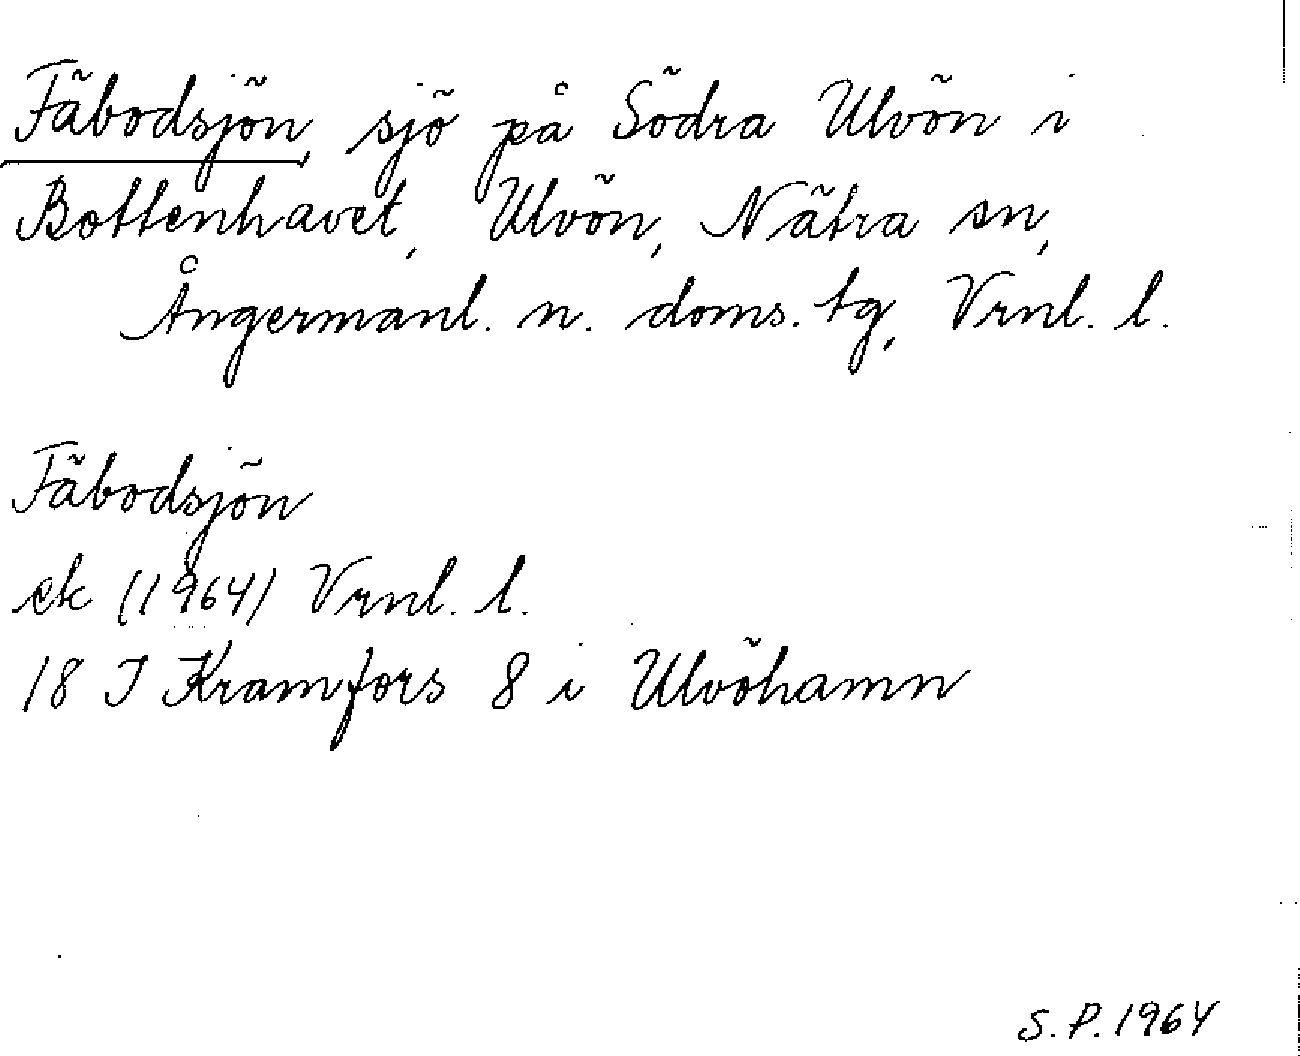 Fäbodsjön, sjö på Södra Ulvön i
Bottenhavet, Ulvön, Nätra sn,
Ångermanl. n. doms. tg, Vrnl. l.
Fäbodsjön
ek (1964) Vrnl. l.
18 I Kramfors 8 i Ulvöhamn
S. P. 1964